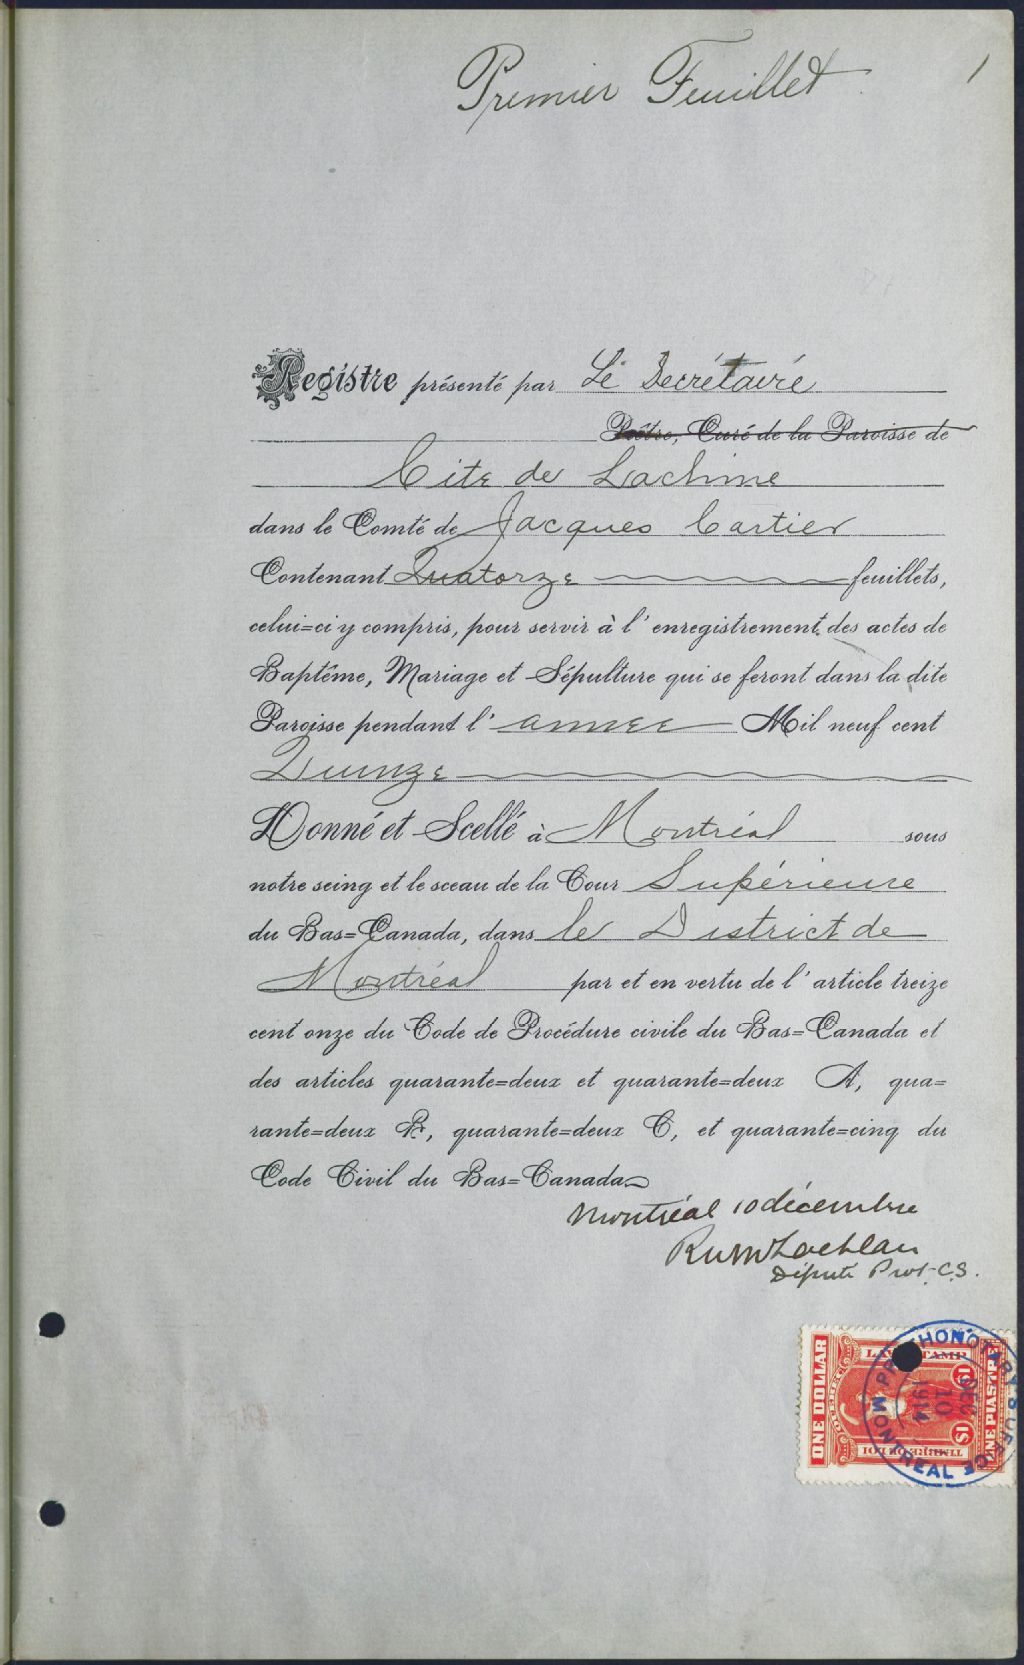 Premier Feuillet
1
Registre présenté par Le Secrétaire
Prêtre, Curé de la Paroisse de
Cite de Lachine
dans le Comté de Jacques Cartier
Contenant Quatorze feuillets,
celui=ci y compris, pour servir à l'enregistrement des actes de
Baptême, Mariage et Sépulture qui se feront dans la dite
Paroisse pendant l'annee Mil neuf cent
Quinze
Donné et Scellé à Montréal sous
notre seing et le sceau de la Cour Supérieure
du Bas=Canada, dans le District de
Montréal par et en vertu de l'article treize
cent onze du Code de Procédure civile du Bas=Canada et
des articles quarante=deux et quarante=deux A, qua=
rante=deux B, quarante=deux C, et quarante=cinq du
Code Civil du Bas=Canada
Montréal 10 décembre
Député Prot. C.S.
ONE DOLLAR
LAW STAMP
QUEBEC
$1
TIMBRE DE LOI
UNE PIASTRE
PROTHONOTARY'S OFFICE
DEC
10
1914
MONTREAL